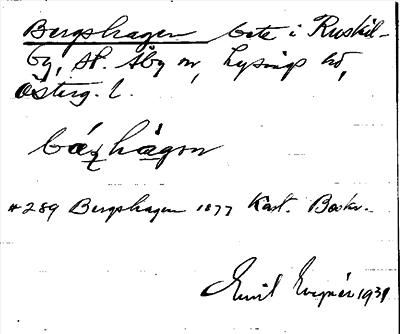 Bergshagen bete i Ruskil-
by, St. Åby sn, Lysings hd,
Österg. l.
bæ̀rhagən
# 289 Bergshagen 1877 Kart. Beskr.
Emil 1931